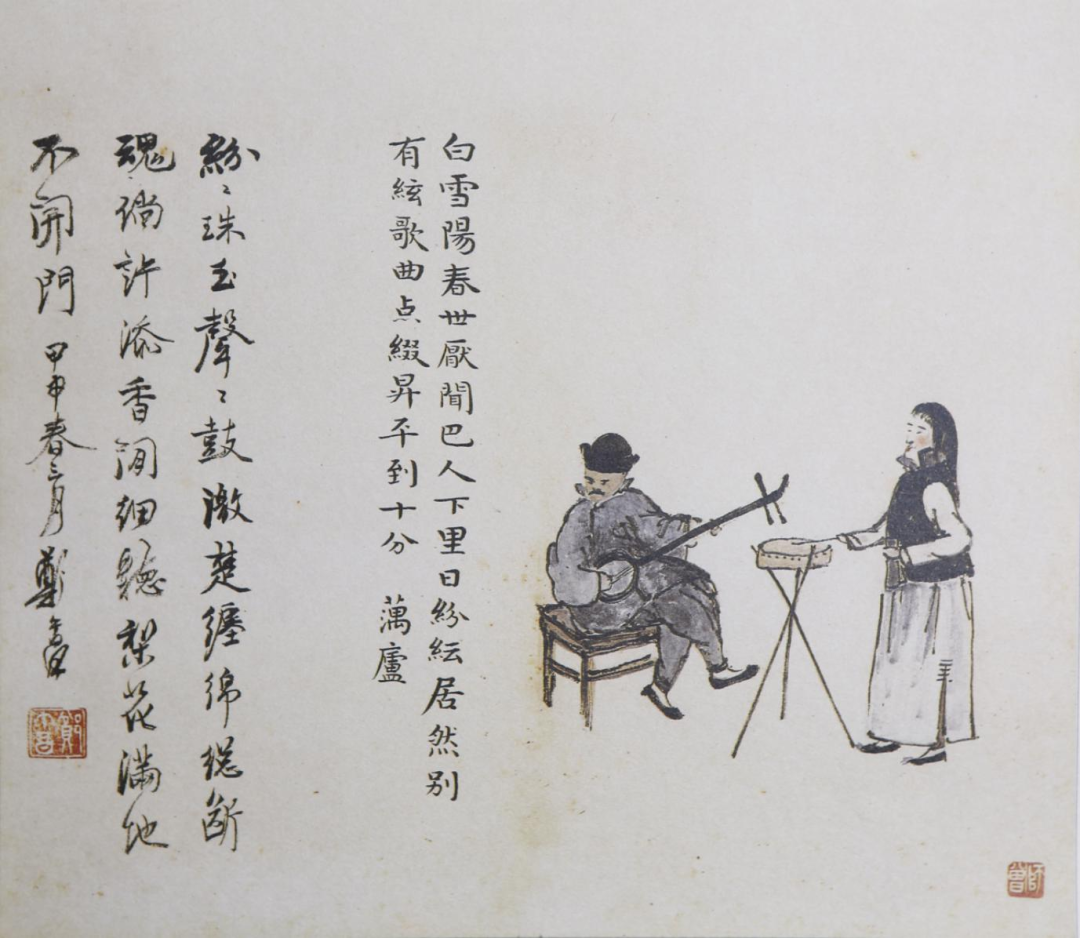 白雪陽春世厭聞巴人下里日紛紜居然別
有絃歌曲点綴昇平到十分 藕廬
紛〻珠玉聲〻鼓激楚纏綿總斷
魂倘許添香間細聽梨花滿地
不開門 甲申春三月鄭
師曾